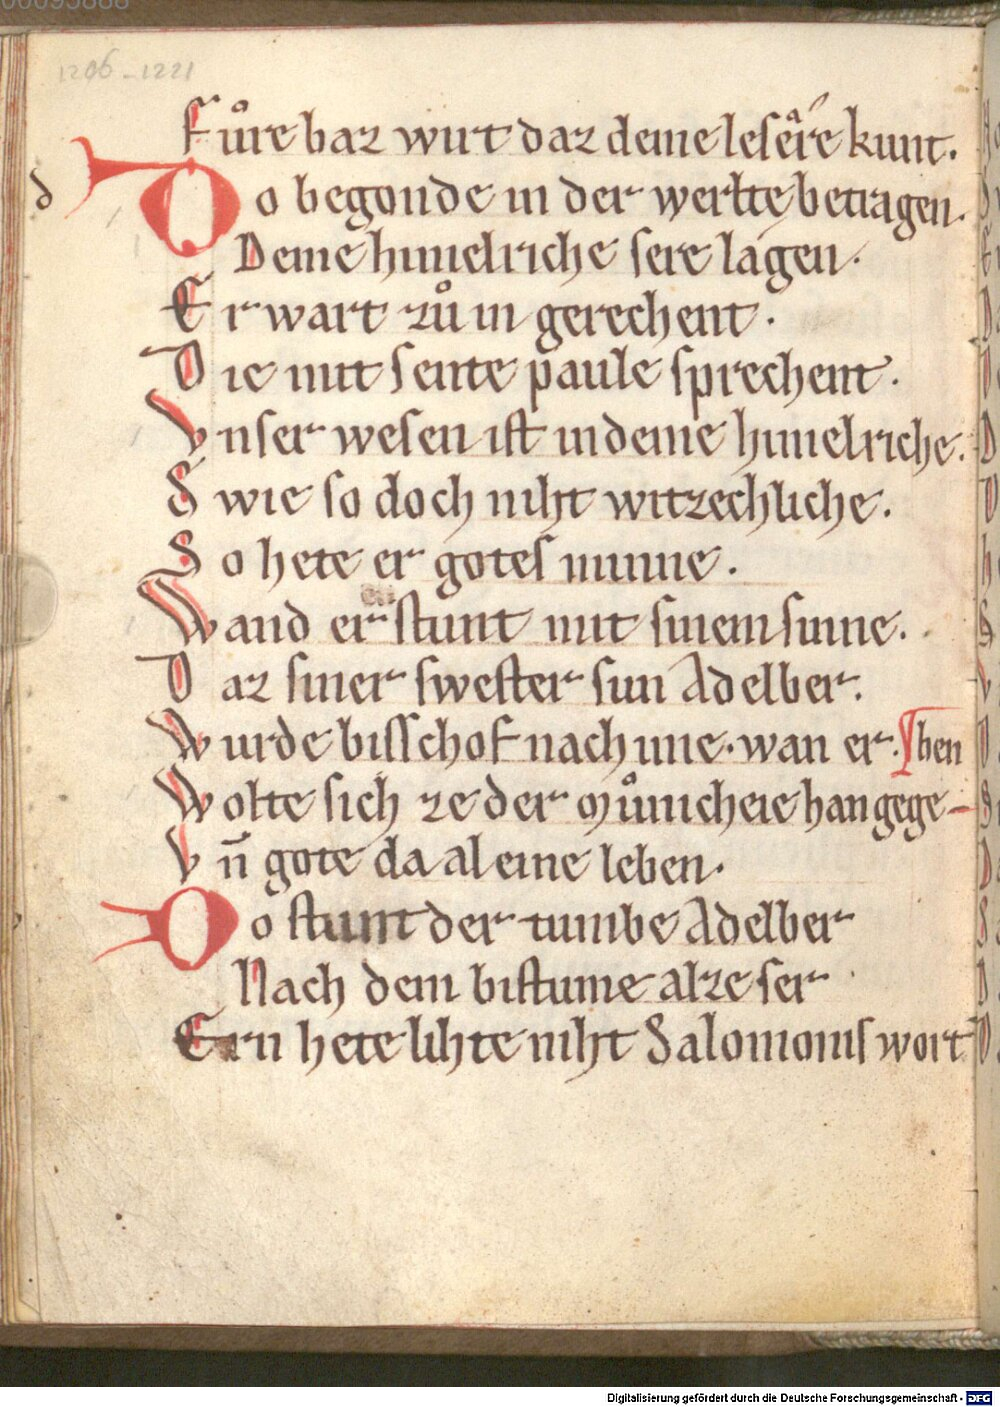 1206-1221
Fůre baz wirt daz deme lesêre kunt.
d
Do begonde in der werlte betragen.
Deme himelriche sere lagen.
Er wart zů in gerechent.
Die mit sente paule sprechent.
Vnser wesen ist in deme himelriche.
Swie so doch niht witzechliche.
So hete er gotes minne.
Wand er stunt mit sinem sinne.
Daz siner swester sun Adelber.
Wurde bisschof nach ime. wan er. ben
Wolte sich ze der můnicheie han gege-
Vn̄ gote da al eine leben.
Do stunt der tumbe Adelber
Nach dem bistume alze ser
Ern hete lihte niht Salomonis wort
Digitalisierung gefördert durch die Deutsche Forschungsgemeinschaft - DFG